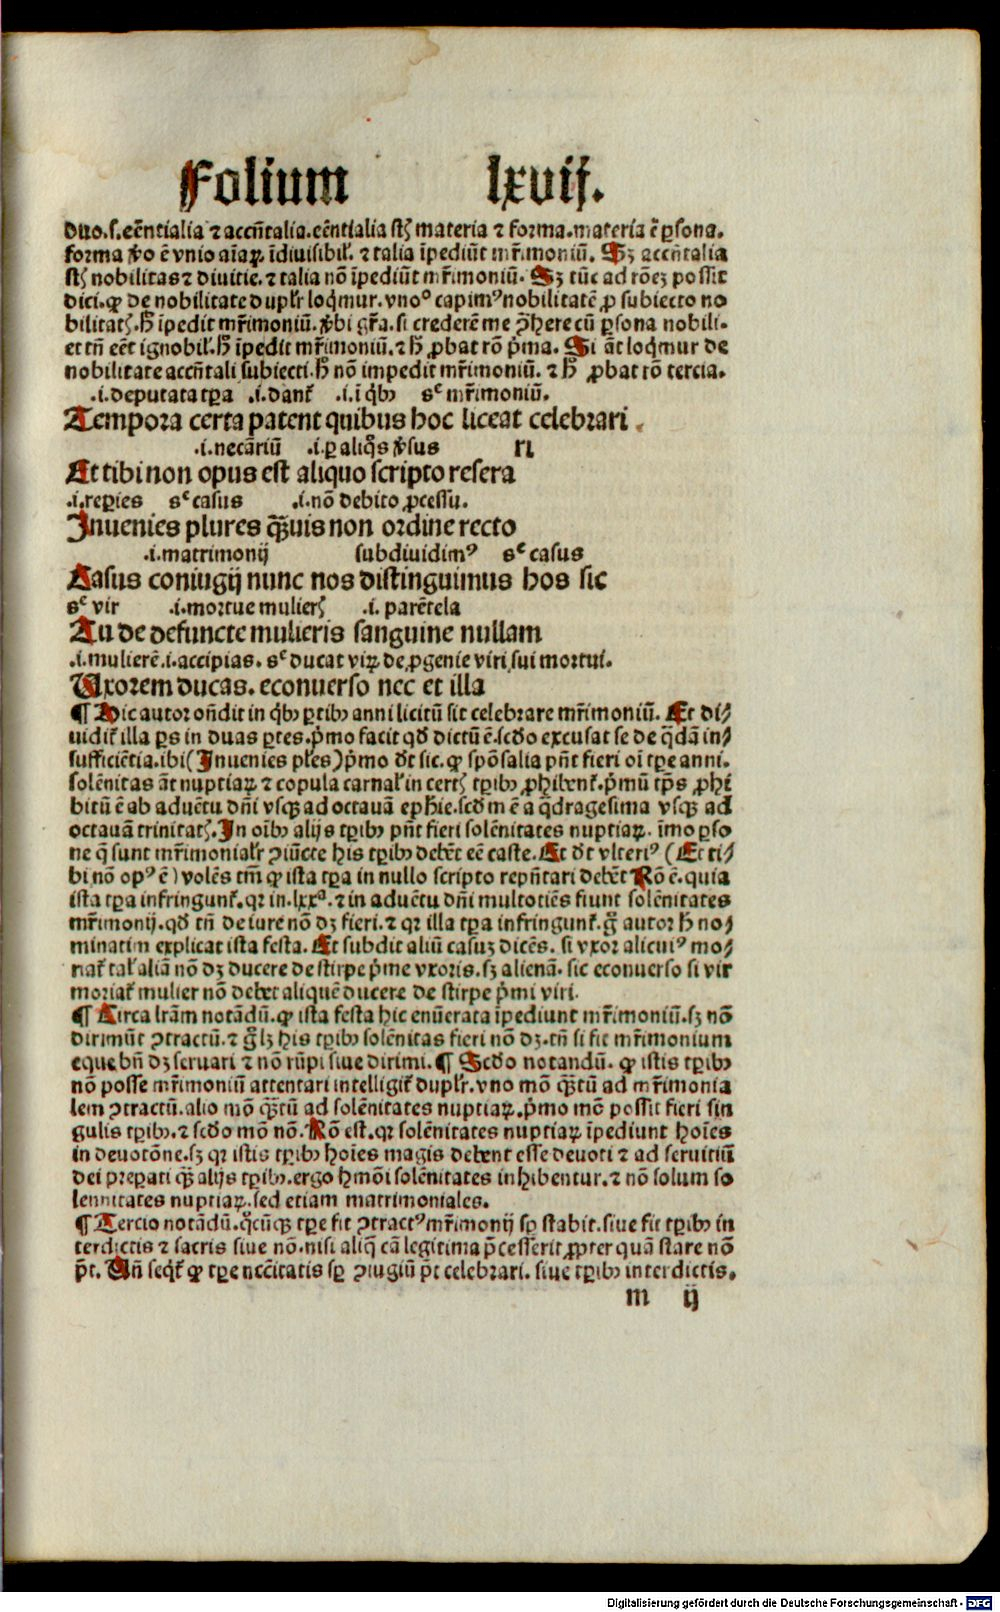 Folium lxvij.
duo.s.eēntialia ⁊ accn̄talia.eēntialia st̄ materia ⁊ forma.materia ē ꝑsona.
forma v̓o ē vnio aīaꝝ īdiuisibil̓. ⁊ talia īpediūt mr̄imoniū. Sꝫ accn̄talia
st̄ nobilitas ⁊ diuitie. ⁊ talia nō īpediūt mr̄imoniū. Sꝫ tūc ad rōeꝫ possit
dici. ꝙ de nobilitate dupl̓r loqͥmur. vnoº capimꝰ nobilitatē ꝓ subiecto no
bilitatꝭ. H̄ īpedit mr̄imoniū. v̓bi gr̄a. si crederē me ꝯ̄here cū ꝑsona nobili.
et tn̄ eēt ignobil̓. h̄ īpedit mr̄imoniū. ⁊ h̄ ꝓbat rō pͥma. Si āt loqͥmur de
nobilitate accn̄tali subiecti. h̄ nō impedit mr̄imoniū. ⁊ h̄ ꝓbat rō tercia.
.i.deputata tꝑa .i.dant᷑ .i.ī qͥbꝫ sᶜ mr̄imoniū.
Tempora certa patent quibus hoc liceat celebrari
.i.necāriū .i.ꝑ aliqͦs v̓sus ri
Et tibi non opus est aliquo scripto resera
.i.reꝑies sᶜ casus .i.nō debito ꝓcessu.
Inuenies plures qͣ̄uis non ordine recto
.i.matrimonij subdiuidimꝰ sᶜ casus
Casus coniugij nunc nos distinguimus hos sic
sᶜ vir .i.mortue mulierꝭ .i. parētela
Tu de defuncte mulieris sanguine nullam
.i.mulierē.i.accipias. sᶜ ducat viꝝ de ꝓgenie viri sui mortui.
Uxorem ducas. econuerso nec et illa
¶ Hic autor on̄dit in qͥbꝫ ꝑtibꝫ anni licitū sit celebrare mr̄imoniū. Et di⸗
uidit᷑ illa ꝑs in duas ꝑtes. pͥmo facit qd̓ dictū ē. scd̓o excusat se de qͣdā in⸗
sufficiētia. ibi (Inuenies pl̓es) pͥmo d̓t sic. ꝙ spōsalia pn̄t fieri oī tꝑe anni.
solēnitas āt nuptiaꝝ ⁊ copula carnal̓ in certꝭ tꝑibꝫ ꝓhibent᷑. pͥmū tp̄s ꝓhi
bitū ē ab aduētu dn̄i vsqꝫ ad octauā epꝪ̄ie. scd̓m ē a qͣdragesima vsqꝫ ad
octauā trinitatꝭ. In oībꝫ alijs tꝑibꝫ pn̄t fieri solēnitates nuptiaꝝ. īmo ꝑso
ne q̄ sunt mr̄imonial̓r ꝯiūcte his tꝑibꝫ debēt eē caste. Et d̓t vlteriꝰ (Et ti⸗
bi nō opꝰ ē) volēs tm̄ ꝙ ista tꝑa in nullo scripto repn̄tari debēt Rō ē. quia
ista tꝑa infringunt᷑. qꝛ in.lxxª. ⁊ in aduētu dn̄i multotiēs fiunt solēnitates
mr̄imonij. qd̓ tn̄ de iure nō dꝫ fieri. ⁊ qꝛ illa tꝑa infringunt᷑. gͦ autor h̄ no⸗
minatim explicat ista festa. Et subdit aliū casuꝫ dicēs. si vxor alicuiꝰ mo⸗
riat᷑ tal̓ aliā nō dꝫ ducere de stirpe pͥme vxoris. sꝫ alienā. sic econuerso si vir
moriat᷑ mulier nō debet aliquē ducere de stirpe pͥmi viri.
¶ Circa lr̄am notādū. ꝙ ista festa hic enūerata īpediunt mr̄imoniū. sꝫ nō
dirimūt ꝯtractū. ⁊ gͣlꝫ his tꝑibꝫ solēnitas fieri nō dꝫ. tn̄ si fit mr̄imonium
eque bn̄ dꝫ seruari ⁊ nō rūpi siue dirimi. ¶ Scd̓o notandū. ꝙ istis tꝑibꝫ
nō posse mr̄imoniū attentari intelligit᷑ dupl̓r. vno mō qͣ̄tū ad mr̄imonia
lem ꝯtractū. alio mō qͣ̄tū ad solēnitates nuptiaꝝ. pͥmo mō possit fieri sin
gulis tꝑibꝫ. ⁊ scd̓o mō nō. Rō est. qꝛ solēnitates nuptiaꝝ īpediunt hoīes
in deuotōne. sꝫ qꝛ istis tꝑibꝫ hoīes magis debent esse deuoti ⁊ ad seruitiū
dei preꝑati qͣ̄ alijs tꝑibꝫ. ergo hmōi solēnitates inhibentur. ⁊ nō solum so
lennitates nuptiaꝝ. sed etiam matrimoniales.
¶ Tercio notādū. qn̄cūqꝫ tꝑe fit ꝯtractꝰ mr̄imonij sꝑ stabit. siue fit tꝑibꝫ in
terdictis ⁊ sacris siue nō. nisi aliq̄ cā legitima p̄cesserit ꝓpter quā stare nō
pōt. Un̄ seqͥt᷑ ꝙ tꝑe necc̄itatis sꝑ ꝯiugiū pōt celebrari. siue tꝑibꝫ interdictis.
m ij
Digitalisierung gefördert durch die Deutsche Forschungsgemeinschaft - DFG